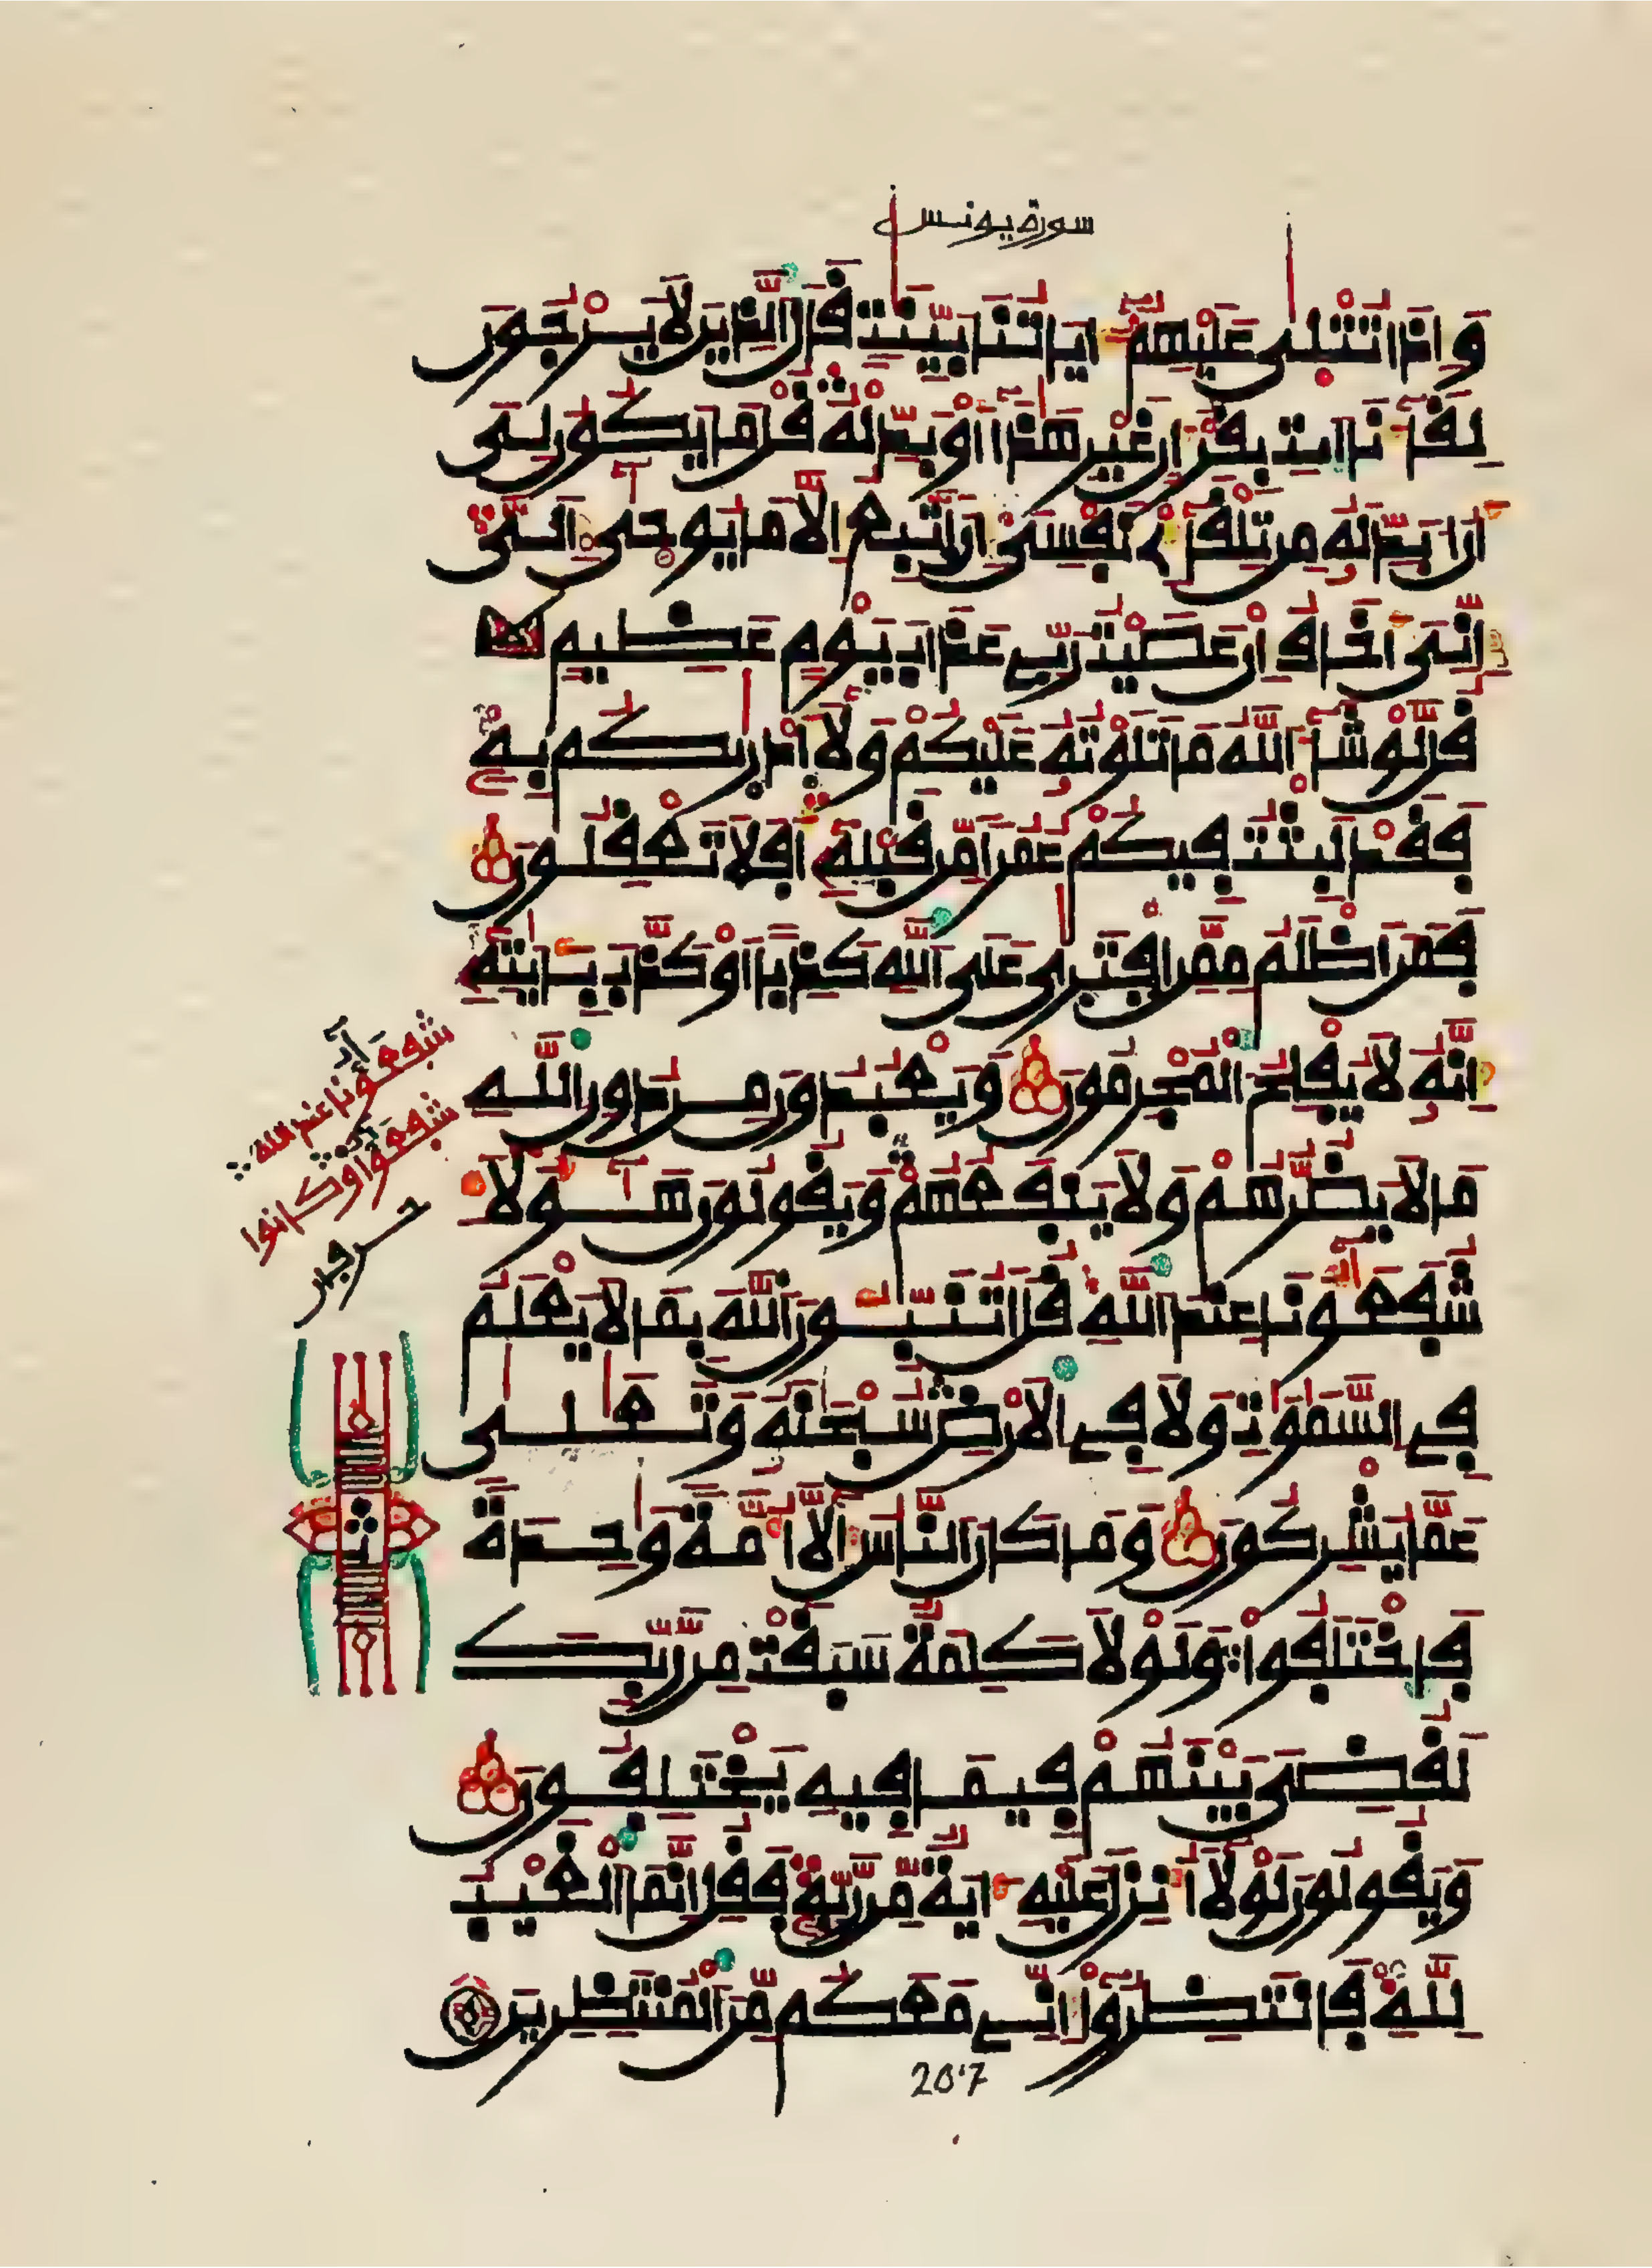 سورة يونس
وَإِذَا تُتْلَىٰ عَلَيْهِمُۥٓ ءَايَاتُنَا بَيِّنَٰتٖ قَالَ ٱلذِينَ لَا يَرْجُونَ
لِقَآءَنَا ٱيتِ بِقُرْءَانٍ غَيْرِ هَٰذَآ أَوْ بَدِّلْهُ قُلْ مَا يَكُونُ لِىَ
أَنُ ابَدِّلَهُۥ مِن تِلْقَآءِے نَفْسِىَ إِنَ اتَّبِعُ إِلَّا مَا يُوحَىٰٓ إِلَىَّ
إِنِّىَ أَخَافُ إِنْ عَصَيْتُ رَبِّے عَذَابَ يَوْمٍ عَظِيمٖ
قُل لَّوْ شَآءَ ٱللَّهُ مَا تَلَوْتُهُۥ عَلَيْكُمْ وَلَآ أَدْرَىٰكُم بِهِۦ
فَقَدْ لَبِثْتُ فِيكُمْ عُمُراٗ مِّن قَبْلِهِۦٓ أَفَلَا تَعْقِلُونَ
فَمَنَ اظْلَمُ مِمَّنِ ٱفْتَرَىٰ عَلَى ٱللَّهِ كَذِباً أَوْ كَذَّبَ بِـَٔايَٰتِهِۦٓ
إِنَّهُۥ لَا يُفْلِحُ ٱلْمُجْرِمُونَ وَيَعْبُدُونَ مِن دُونِ ٱللَّهِ
مَا لَا يَضُرُّهُمْ وَلَا يَنفَعُهُمْ وَيَقُولُونَ هَٰٓؤُلَآءِ
شُفَعَٰٓؤُنَا عِندَ ٱللَّهِ قُلَ اتُنَبِّـُٔونَ ٱللَّهَ بِمَا لَا يَعْلَمُ
فِے ٱلسَّمَٰوَٰتِ وَلَا فِے ٱلْأَرْضِ سُبْحَٰنَهُۥ وَتَعَٰلَىٰ
عَمَّا يُشْرِكُونَ وَمَا كَانَ ٱلنَّاسُ إِلَّآ أُمَّةٗ وَٰحِدَةٗ
فَٱخْتَلَفُواْ وَلَوْلَا كَلِمَةٞ سَبَقَتْ مِن رَّبِّكَ
لَقُضِىَ بَيْنَهُمْ فِيمَا فِيهِ يَخْتَلِفُونَ
وَيَقُولُونَ لَوْلَآ أُنزِلَ عَلَيْهِ ءَايَةٞ مِّن رَّبِّهِۦ فَقُلِ انَّمَا ٱلْغَيْبُ
لِلهِ فَٱنتَظِرُوٓاْ إِنِّے مَعَكُم مِّنَ ٱلْمُنتَظِرِينَ
شفعؤنا عند الله
شفعؤا وكانوا
ثمن
207